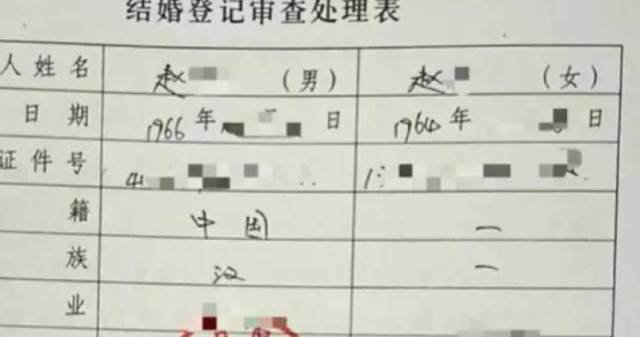 结婚登记审查处理表
人姓名 赵 （男） 赵 （女）
日期 1966年 日 1964年 日
证件号 41 1
籍 中国 一
族 汉 一
业